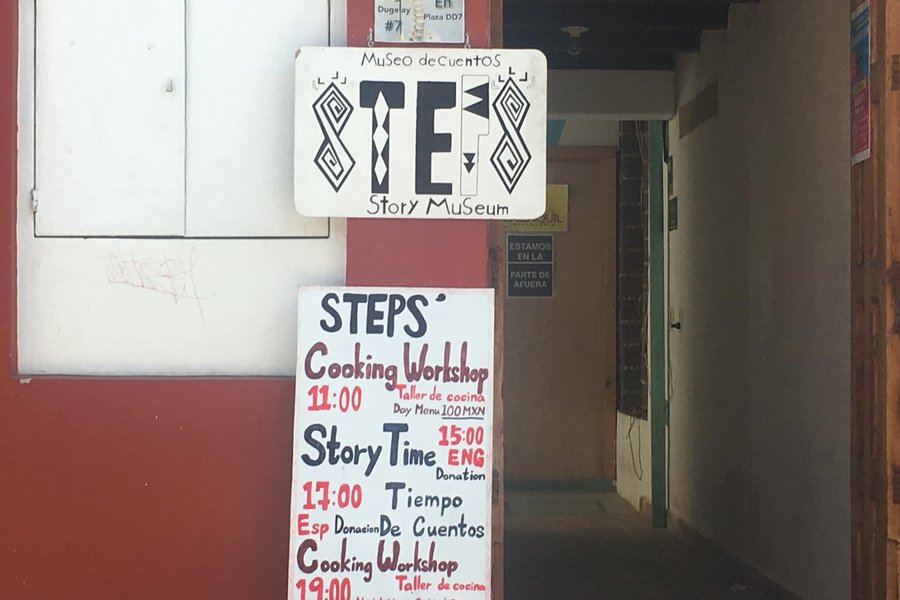 Dugelay
#7
En
Plaza DD7
Museo de Cuentos
STEPS
Story Museum
ESTAMOS
EN LA
PARTE DE
AFUERA
STEPS'
Cooking Workshop
11:00 Taller de cocina
Day Menu 100 MXN
Story Time 15:00
ENG
Donation
17:00 Tiempo
Esp Donacion De Cuentos
Cooking Workshop
19:00 Taller de cocina